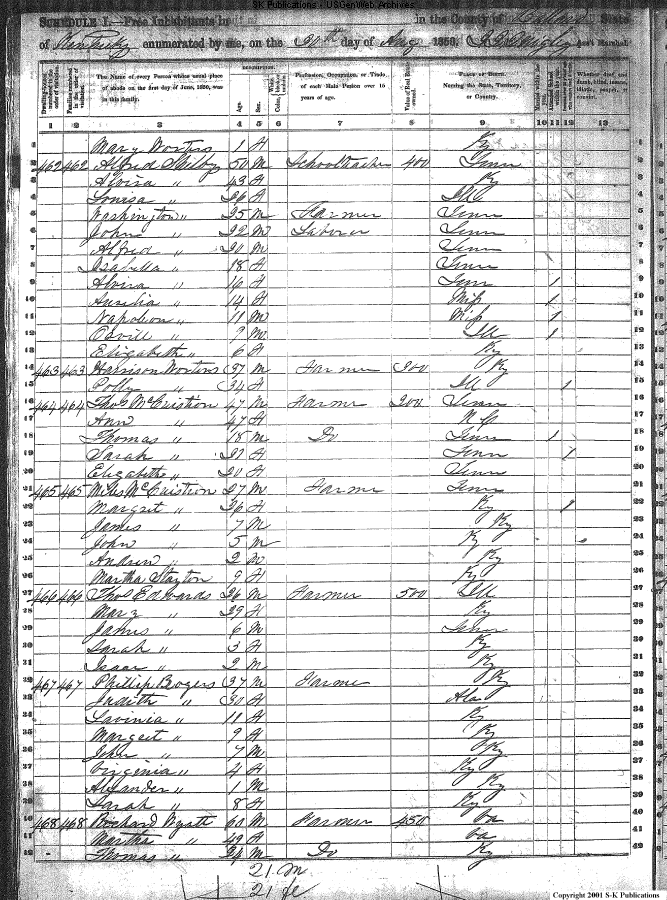 S-K Publications - USGenWeb Archives
SCHEDULE I.—Free Inhabitants in in the County of State
of Kentucky enumerated by me, on the 30th day of Aug 1850. Ass't Marshal.
Dwelling-houses numbered in the order of visitation.
Families numbered in the order of visitation.
The Name of every Person whose usual place of abode on the first day of June, 1850, was in this family.
DESCRIPTION.
Age
Sex.
Color, White, black, or mulatto.
Profession, Occupation, or Trade of each Male Person over 15 years of age.
Value of Real Estate owned.
PLACE OF BIRTH
Naming the State, Territory, or Country.
Married within the year.
Whether deaf and dumb, blind, insane, idiotic, pauper, or convict.
1 2 3 4 5 6 7 8 9 10 11 12 13
1 Mary Worters 1 F Ky
2 462 462 Alfred Shelby 50 M Schoolteacher 400 Tenn
3 Alvira " 43 F Ky
4 Louisa " 26 F Ill
5 Washington " 25 M Farmer Tenn
6 John " 22 M Laborer Tenn
7 Alfred " 20 M Tenn
8 Izabella " 18 F Tenn
9 Alvira " 16 F Tenn 1
10 Aurelia " 14 F Mip 1
11 Napoleon " 11 M Mip 1
12 " 9 M Ill 1
13 Elizabeth " 6 F Ky
14 463 463 Harrison Worters 37 M Farmer 200 Ky
15 Polly " 34 F Ill 1
16 464 464 Thos McCuistion 47 M Farmer 200 Tenn
17 Ann " 47 F N C
18 Thomas " 18 M Do Tenn 1
19 Sarah " 22 F Tenn 1
20 Elizabeth " 20 F Tenn
21 465 465 Miles McCuistion 27 M Farmer Tenn
22 Margret " 26 F Ky 1
23 James " 7 M Ky
24 John " 5 M Ky
25 Andrew " 2 M Ky
26 Martha Stayton 9 F Ky
27 466 466 Thos Edwards 26 M Farmer 500 Ill
28 Mary " 29 F Ky
29 James " 6 M
30 Sarah " 3 F Ky
31 Isaac " 2 M Ky
32 467 467 Phillip Rogers 37 M Farmer Ky
33 Judith " 30 F Ala
34 Lavinia " 11 F Ky
35 Margeet " 9 F Ky
36 John " 7 M Ky
37 Virginia " 4 F Ky
38 Alexander " 1 M Ky
39 Sarah " 8 F Ky
40 468 468 Wyatt 60 M Farmer 450 Va
41 Martha " 49 F Va
42 Thomas " 24 M Do Ky
21 M
21 fe
Copyright 2001 S-K Publications